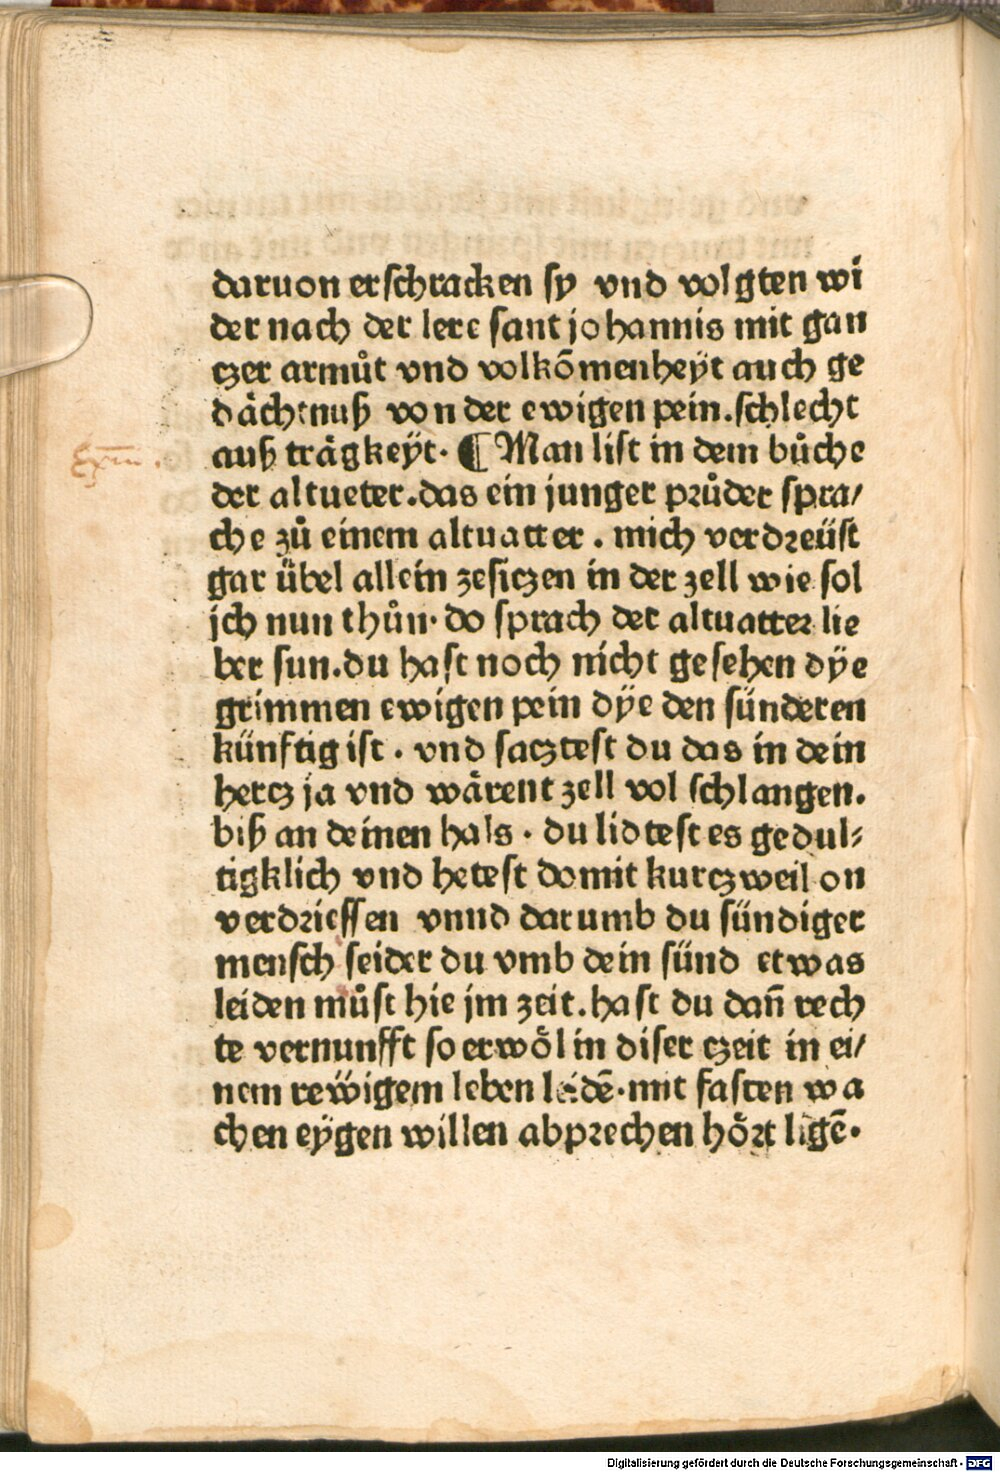 daruon erschracken sy vnd volgten wi
der nach der lere sant johannis mit gan
czer armůt vnd volkõmenheyt auch ge
dächtnuß von der ewigen pein.schlecht
auß trägkeyt. ¶ Man list in dem bůche
der altueter.das ein junger průder spra/
che zů einem altuatter . mich verdreüst
gar übel allein zesiczen in der zell wie sol
jch nun thůn. do sprach der altuatter lie
ber sun.du hast noch nicht gesehen dÿe
grimmen ewigen pein dÿe den sünderen
künftig ist . vnd sacztest du das in dein
hercz ja vnd wärent zell vol schlangen.
biß an deinen hals . du lidtest es gedul⸗
tigklich vnd hetest domit kurczweil on
verdriessen vnnd darumb du sündiger
mensch seider du vmb dein sünd etwas
leiden můst hie jm zeit.hast du dañ rech
te vernunfft so erwöl in diser czeit in ei/
nem rewigem leben leidẽ.mit fasten wa
chen eÿgen willen abprechen hört ligẽ.
Digitalisierung gefördert durch die Deutsche Forschungsgemeinschaft - DFG